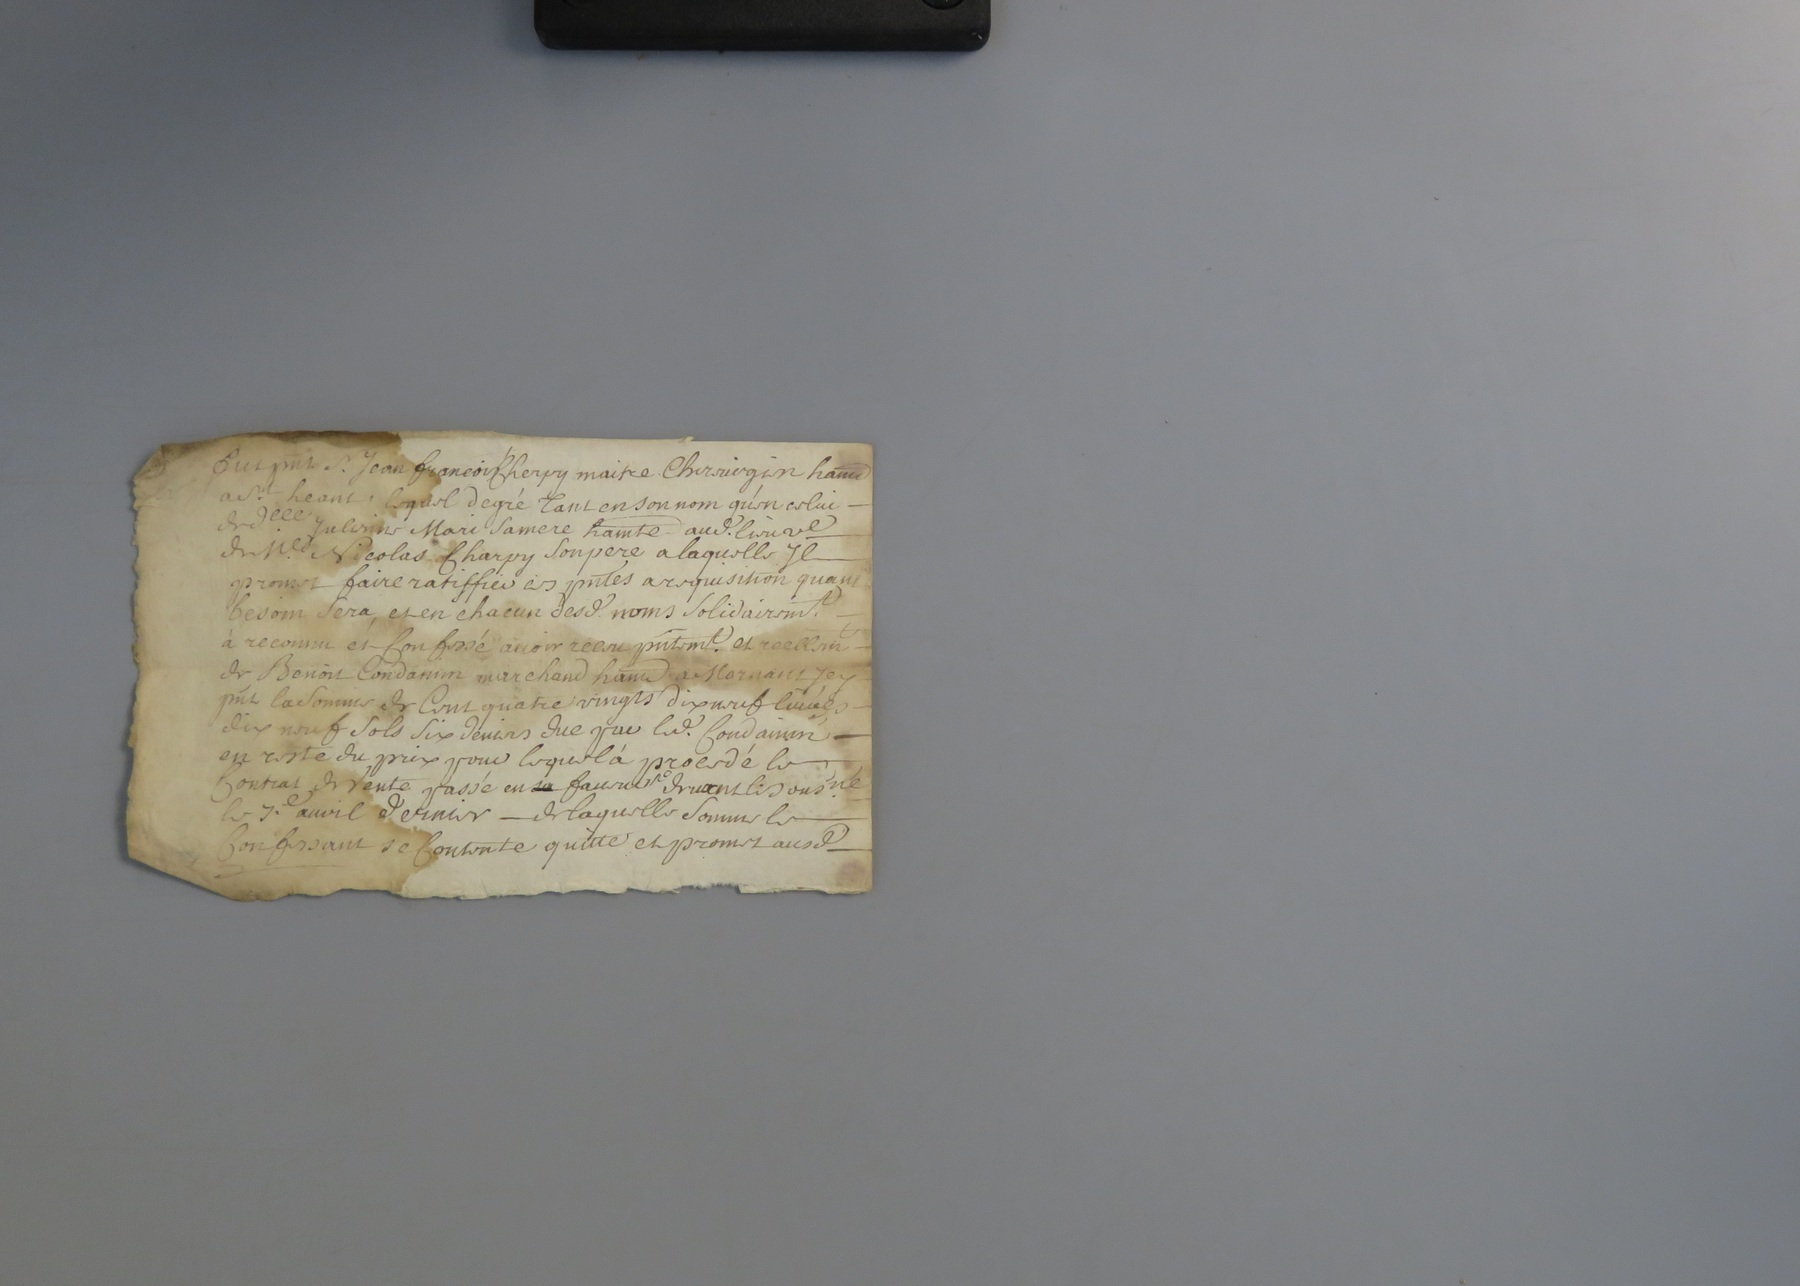 fut pnt Sr. Jean francois Cherpy maitre Chirurgien hant
a St. heant, lequel de gré tant en son nom qu'en celui
de Delle Mari sa mere hante aud. lieu ve
de Me. Nicolas Charpy son pere a laquelle Jl
promet faire ratiffier ces pntes a requisition quant
besoin sera, et en chacun desd. noms solidairemt.
à reconnu et Confessé avoir receu pntemt. et reellemt
de Benoit Condamin marchand hant a Mornant Jcy
pnt la somme de Cent quatre vingts dix neuf livres
dix neuf sols six deniers due par led. Condamin
en reste du prix pour lequel à procedé le
Contrat de vente passé en sa faveur devant le sousné
le 7e. avril dernier de laquelle somme le
Confessant se Contente quitte et promet ausd